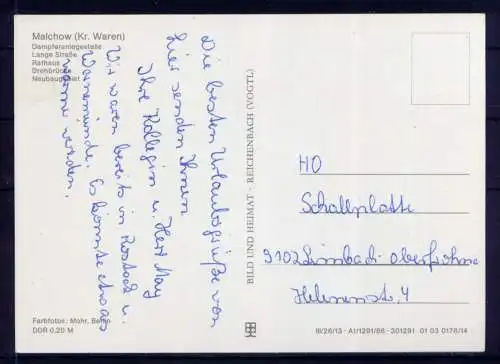 Malchow (Kr. Waren)
Dampferanlegestelle
Lange Straße
Rathaus
Drehbrücke
Neubaugebiet
Die besten Urlaubsgrüße von
hier senden Ihnen
Ihre Kollegin u. Herr May
Wir waren bereits in Rostock u.
Warnemünde. Es könnte etwas
wärmer werden.
Farbfotos: Mohr, Berlin
DDR 0,20 M
BILD UND HEIMAT · REICHENBACH (VOGTL)
HO
Schallplatte
9102 Limbach Oberfrohna
Helenenstr. 4
III/26/13 · A1/1291/86 · 301291 01 03 0176/14